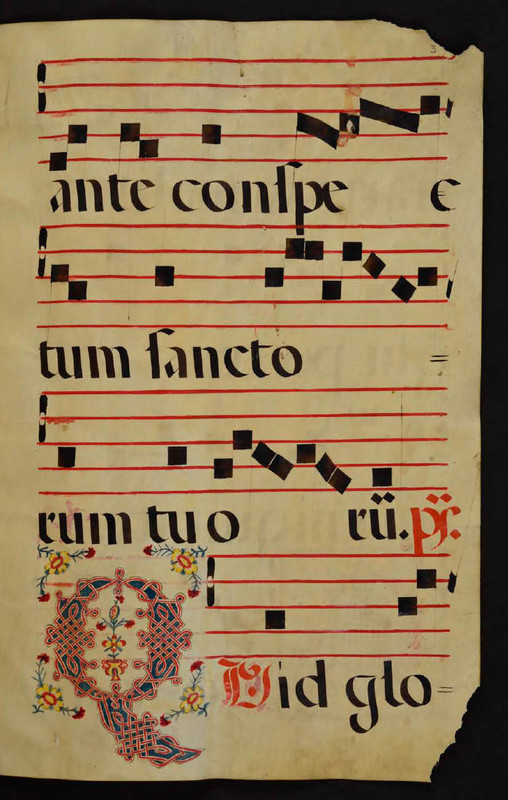 ante conſpe c=
tum ſancto =
rum tuo rū. pſ.
QVid glo=